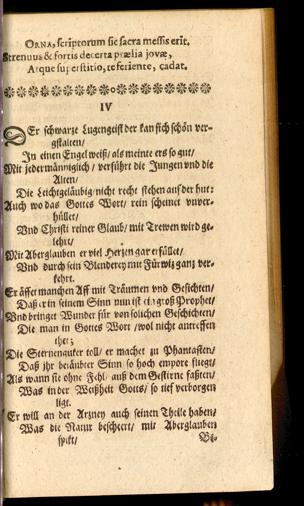 ORNA, scriptorum sic sacra messis erit.
Strenuus & fortis decerta prælia jovæ,
Atque superstitio, te feriente, cadat.
IV
DEr schwarze Lugengeist der kan sich schön ver-
gstalten/
In einen Engel weiß/ als meinte ers so gut/
Mit jedermänniglich/ verführt die Jungen vnd die
Alten/
Die Leichtgeläubig/nicht recht stehen auf der hut:
Auch wo das Gottes Wort/ rein scheinet vnver-
hüllet/
Vnd Christi reiner Glaub/ mit Trewen wird ge-
lehrt/
Mit Aberglauben er viel Herzen gar erfüllet/
Vnd durch sein Blenderey mit Fürwiz ganz ver-
kehrt.
Er äffet manchen Aff mit Träumen vnd Gesichten/
Daß er in seinem Sinn nun ist ein groß Prophet/
Vnd bringet Wunder für von solichen Geschichten/
Die man in Gottes Wort /wol nicht antreffen
thet;
Die Sternengucker toll/ er machet zu Phantasten/
Daß ihr betäubter Sinn so hoch empore fliegt/
Als wann sie ohne Fehl/ auß dem Gestirne faßten/
Was in der Weißheit Gotts/ so tief verborgen
ligt.
Er will an der Arzney auch seinen Theile haben/
Was die Natur beschert/ mit Aberglauben
spikt/